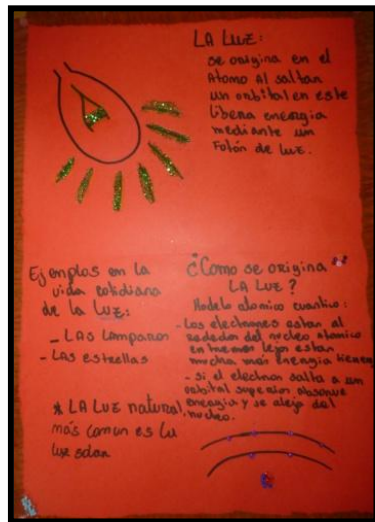 LA LUZ:
se origina en el
Atomo Al saltar
un orbital en este
libera energia
mediante un
Fotón de luz.
Ejemplos en la
vida cotidiana
de la LUZ:
- LAS lamparas
- LAS estrellas
* LA LUZ natural
más comun es la
luz solar
¿Como se origina
LA LUZ?
Modelo atomico cuantico:
- Los electrones estan al
rededor del nucleo atomico
lejos estan
mucha más energia tienen
- si el electron salta a un
orbital superior absorve
energia y se aleja del
nucleo.